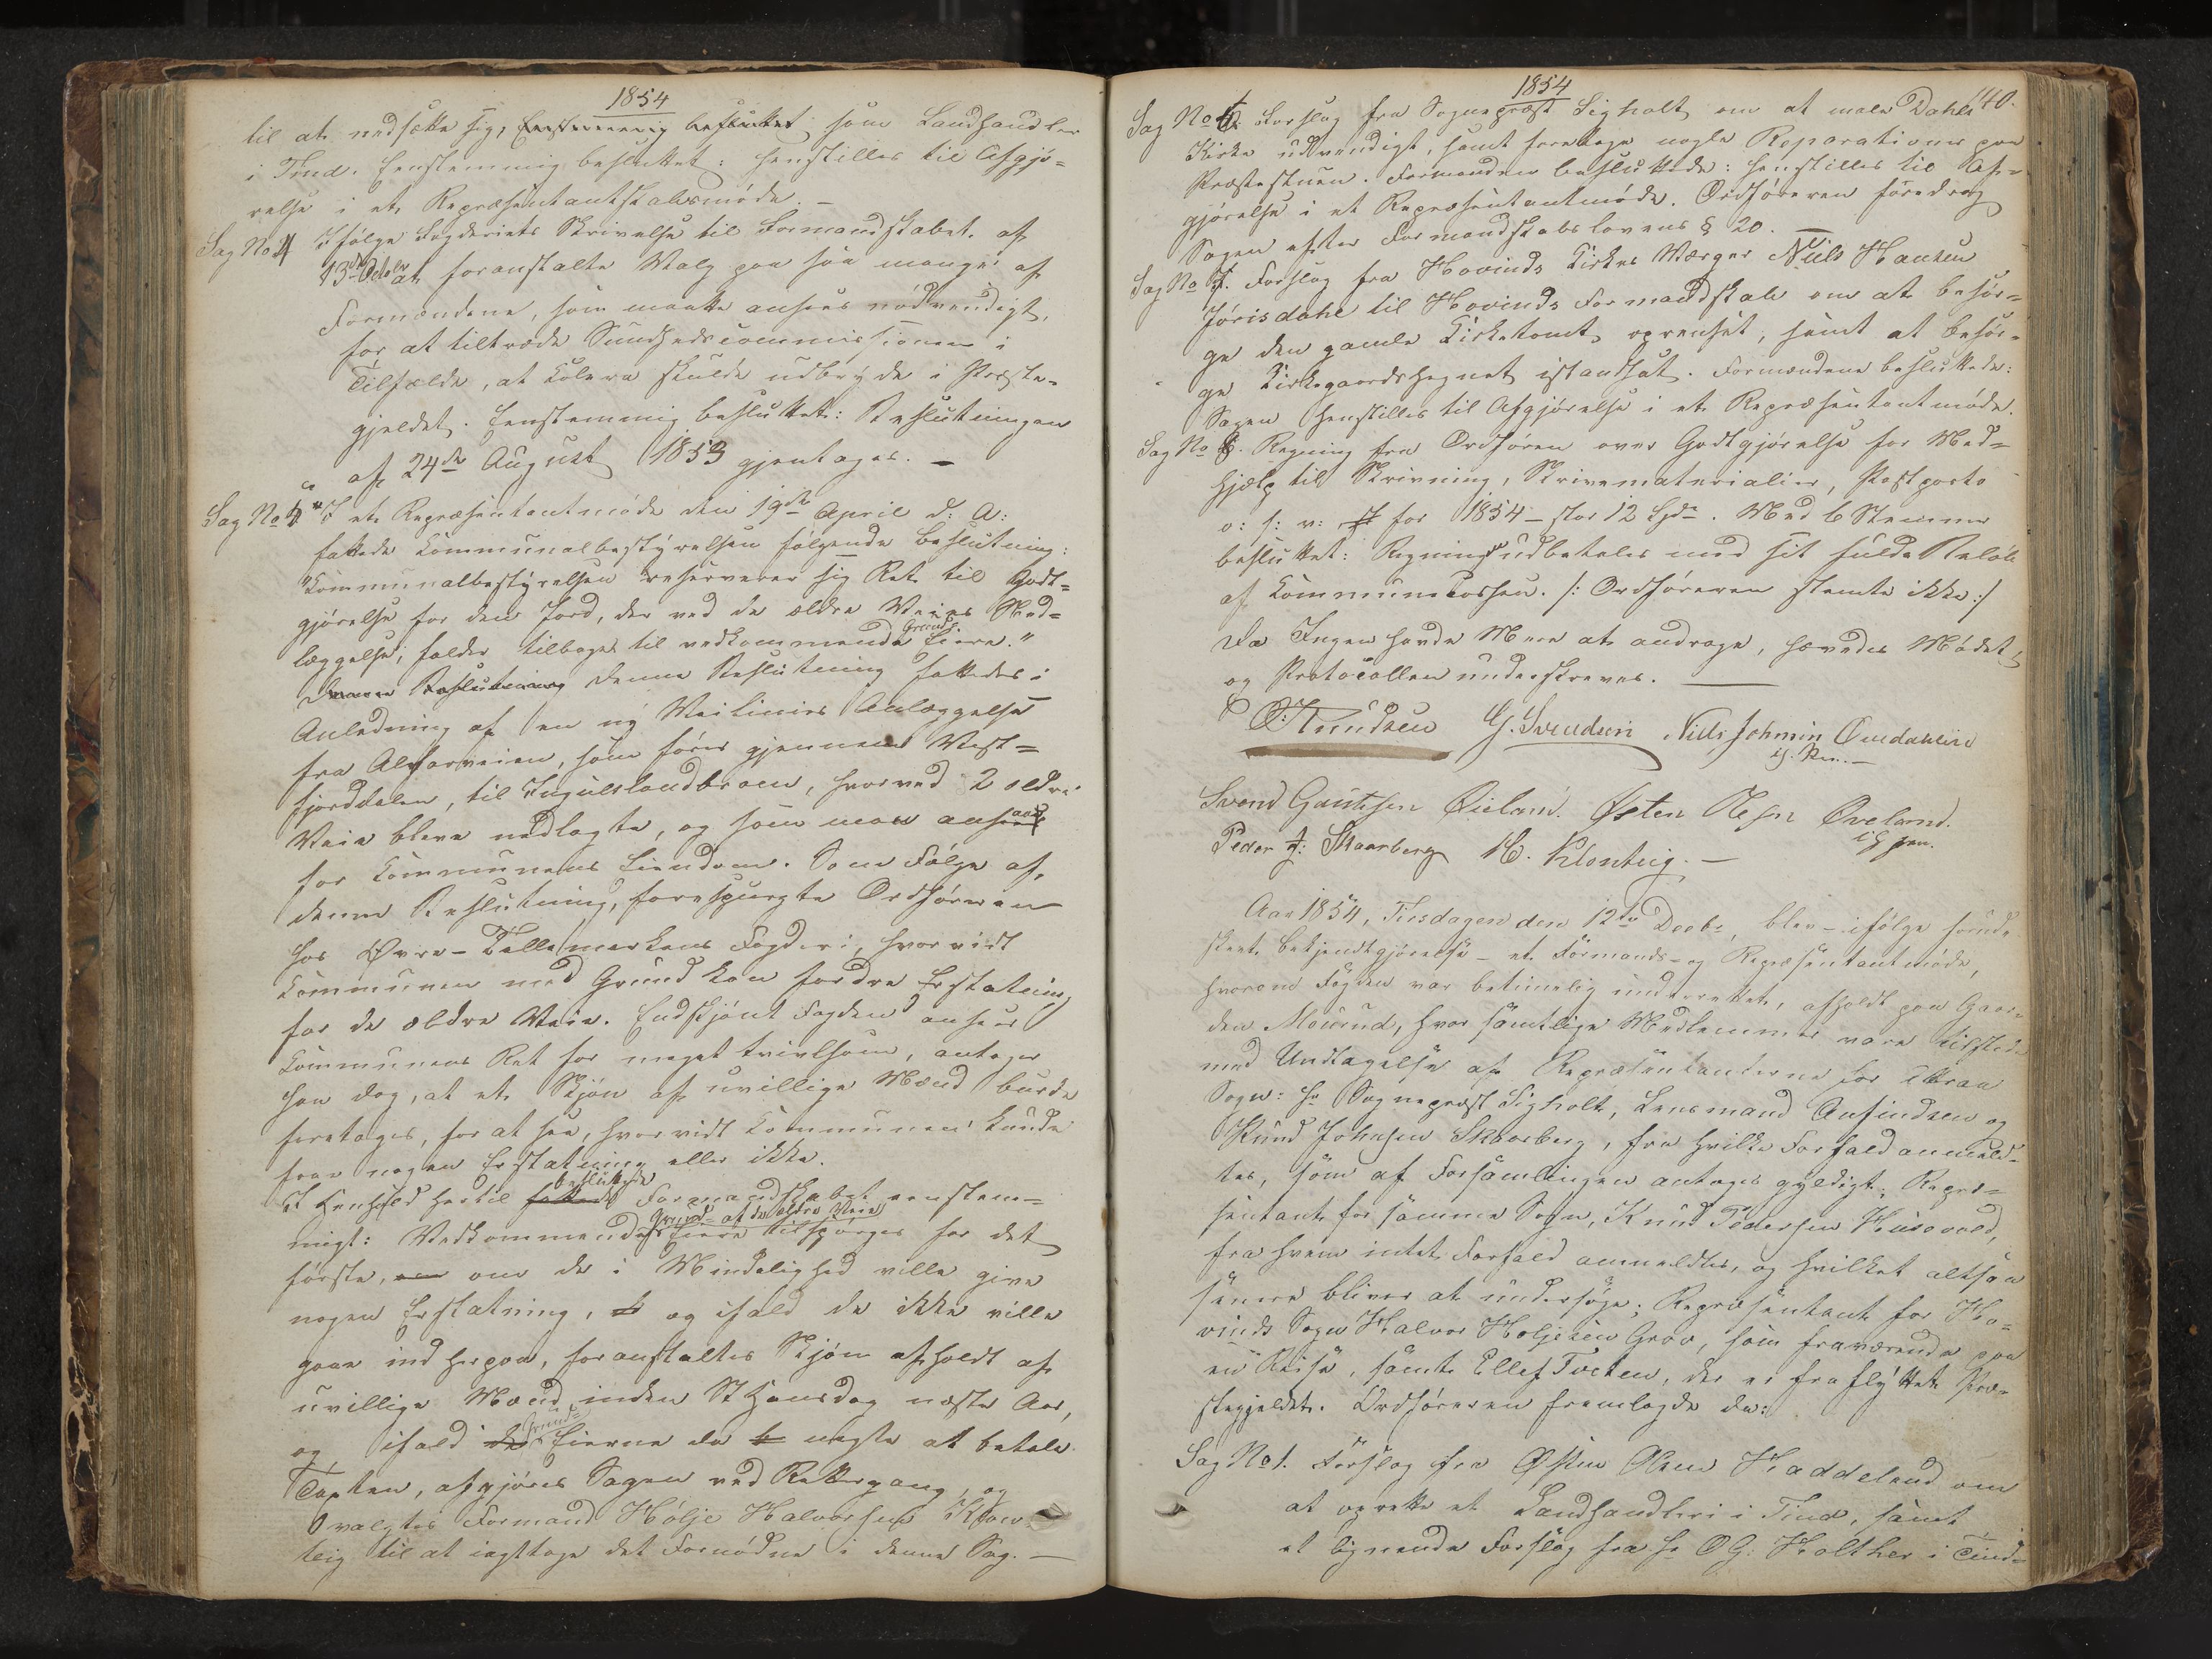 1854
til at nedsætte sig, eenstemmig besluttet som Landhandler
i Tind. Eenstemmig besluttet: henstilles til Afgjø=
relse i et Repræsentantskabsmøde. —
Sag No 4 Ifølge Fogderiets Skrivelse til Formandskabet af
13de Octobr at foranstalte Valg paa saa mange af
Formændene, som maatte ansees nødvendigt,
for at tiltræde Sundhedscommissionen i
Tilfælde, at Colera skulde udbryde i Præste=
gjeldet. Eenstemmig besluttet: Beslutningen
af 24de August 1853 gjentages. —
Sag No 5 I et Repræsentantmøde den 19de April d. A:
fattede Communalbestyrelsen følgende Beslutning:
"Communalbestyrelsen reserverer sig Ret til Godt=
gjørelse for den Jord, der ved de ældre Veies Ned=
læggelse, falder tilbage til vedkommende Grund Eiere."
Denne Beslutning Denne Beslutning fattedes i
Anledning af en ny Veilinies Anlæggelse
fra Alfarveien, som føres gjennem Vest=
fjorddalen, til Ingulslandbroen, hvorved 2 ældre
Veie bleve nedlagte, og som man ansaae
for Communens Eiendom. Som Følge af
denne Beslutning, forespurgte Ordføreren
hos Øvre-Tellemarkens Fogderi, hvorvidt
Communen med Grund kan fordre Erstatning
for de ældre Veie. Endskjønt Fogden anseer
Communens Ret for meget tvivlsom, antager
han dog, at et Skjøn af uvillige Mænd burde
foretages, for at see, hvorvidt Communen kunde
faae nogen Erstatning eller ikke.
I Henhold hertil fattede besluttede Formandskabet eenstem=
migt: Vedkommende Grund- af de ældre Veie Eiere tilspørges for det
første, om om de i Mindelighed ville give
nogen Erstatning, og ifald de ikke ville
gaae ind herpaa, foranstaltes Skjøn afholdt af
uvillige Mænd inden St Hansdag næste Aar,
og ifald de Grund= Eierne da negte at betale
Taxten, afgjøres Sagen ved Rettergang, og
valgtes Formand Hølje Halvorsen Klon=
teig til at iagttage det Fornødne i denne Sag. —
1854
140.
Sag No 6. Forslag fra Sognepræst Sigholt om at male Dahls
Kirke udvendigt, samt foretage nogle Reparationer paa
Præstestuen. Formændene besluttede: henstilles til Af=
gjørelse i et Repræsentantmøde. Ordføreren foredrog
Sagen efter Formandskabslovens § 20. —
Sag No 7. Forslag fra Hovinds Kirkes Værger Niels Hansen
Jørisdahl til Hovinds Formandskab om at besør=
ge den gamle Kirketomt oprenset, samt at besør=
ge Kirkegaardshegnet istandsat. Formændene besluttede:
Sagen henstilles til Afgjørelse i et Repræsentantmøde.
Sag No 8. Regning fra Ordføren over Godtgjørelse for Med=
hjælp til Skrivning, Skrivematerialier, Postporto
o: s: v: for 1854 - stor 12 Spd. Med 6 Stemmer
besluttet: Regning udbetales med sit fulde Beløb
af Communecassen. /: Ordføreren stemte ikke :/
Da Ingen havde Mere at andrage, hævedes Mødet
og Protocollen underskreves. —
O: Knudsen G. Svendsen Niels Johnsen
i g. Pen. —
Svend Gautesen Øieland. Østen Olesn Øveland.
i g pen.
Peder J: Skaarberg H. Klonteig. —
Aar 1854, Tirsdagen den 12te Decbr, blev - ifølge forud
skeet Bekjendtgjørelse - et Formands- og Repræsentantmøde,
hvorom Fogden var betimelig underrettet, afholdt paa Gaar=
den Mourud, hvor samtlige Medlemmer vare tilstede
med Undtagelse af Repræsentanterne for Atraa
Sogn: Hr Sognepræst Sigholt, Lensmand Anfindsen og
Knud Johnsen Skaarberg, fra hvilke Forfald anmeld=
tes, som af Forsamlingen antoges gyldigt; Repræ=
sentant for samme Sogn, Knud Pedersen Husevold,
fra hvem intet Forfald anmeldtes, og hvilket altsaa
senere bliver at undersøge; Repræsentant for Ho=
vinds Sogn Halvor Holjesen Grov, som fraværende paa
en Reise, samt Ellef Tveten, der er fraflyttet Præ=
stegjeldet. Ordføreren fremlagde da:
Sag No 1. Forslag fra Østen Olsen Haddeland om
at oprette et Landhandleri i Tind, samt
et lignende Forslag fra Hr O G: Holther i Tind=